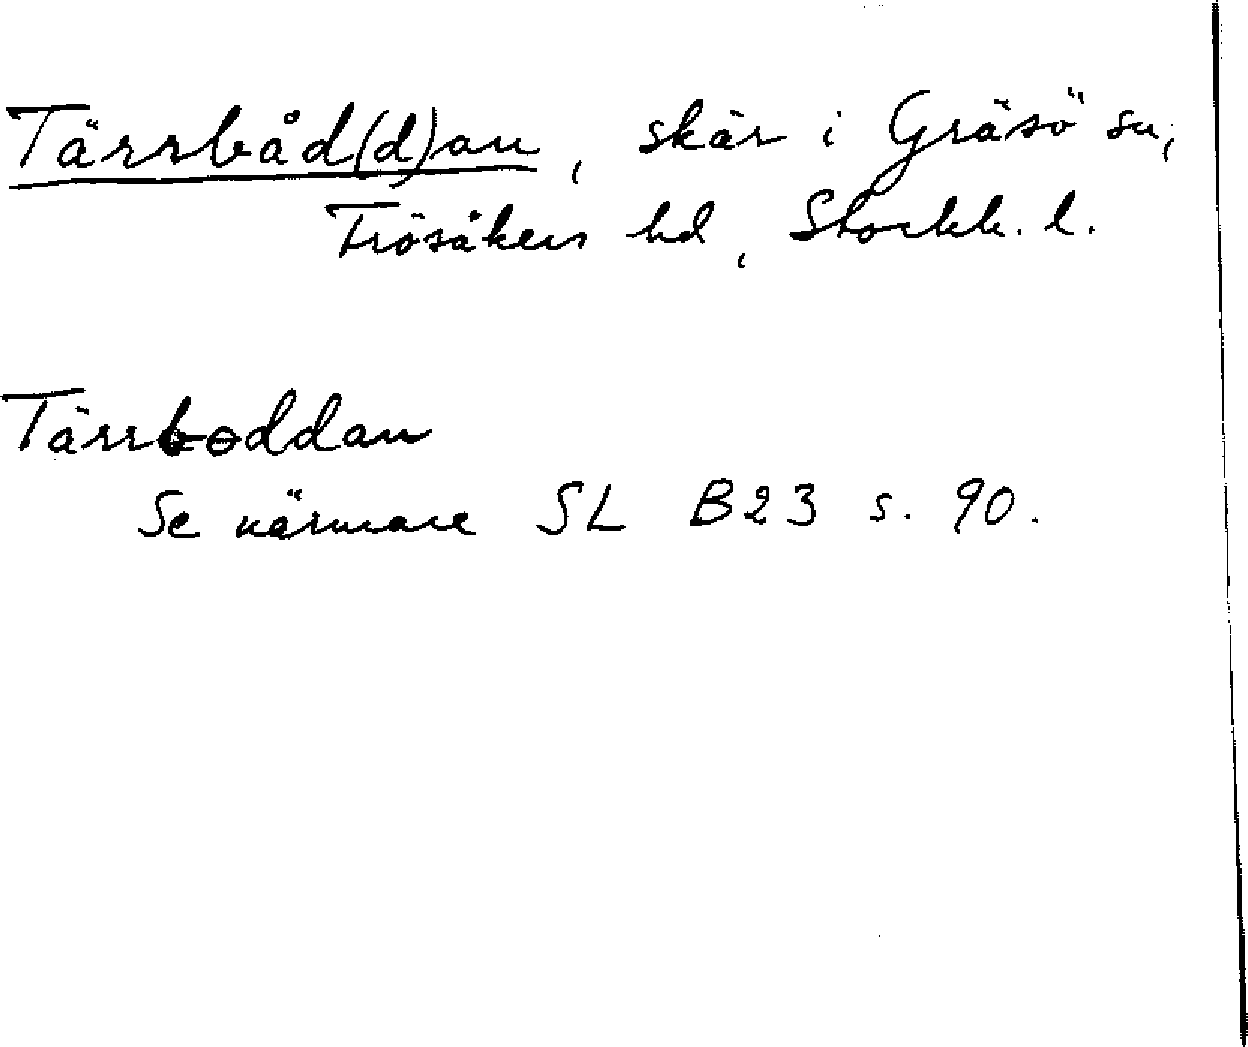 Tärrbåd(d)an, skär i Gräsö sn,
Frösåkers hd, Stockh. l.
Tärrboddan
Se närmare SL B23 s. 90.